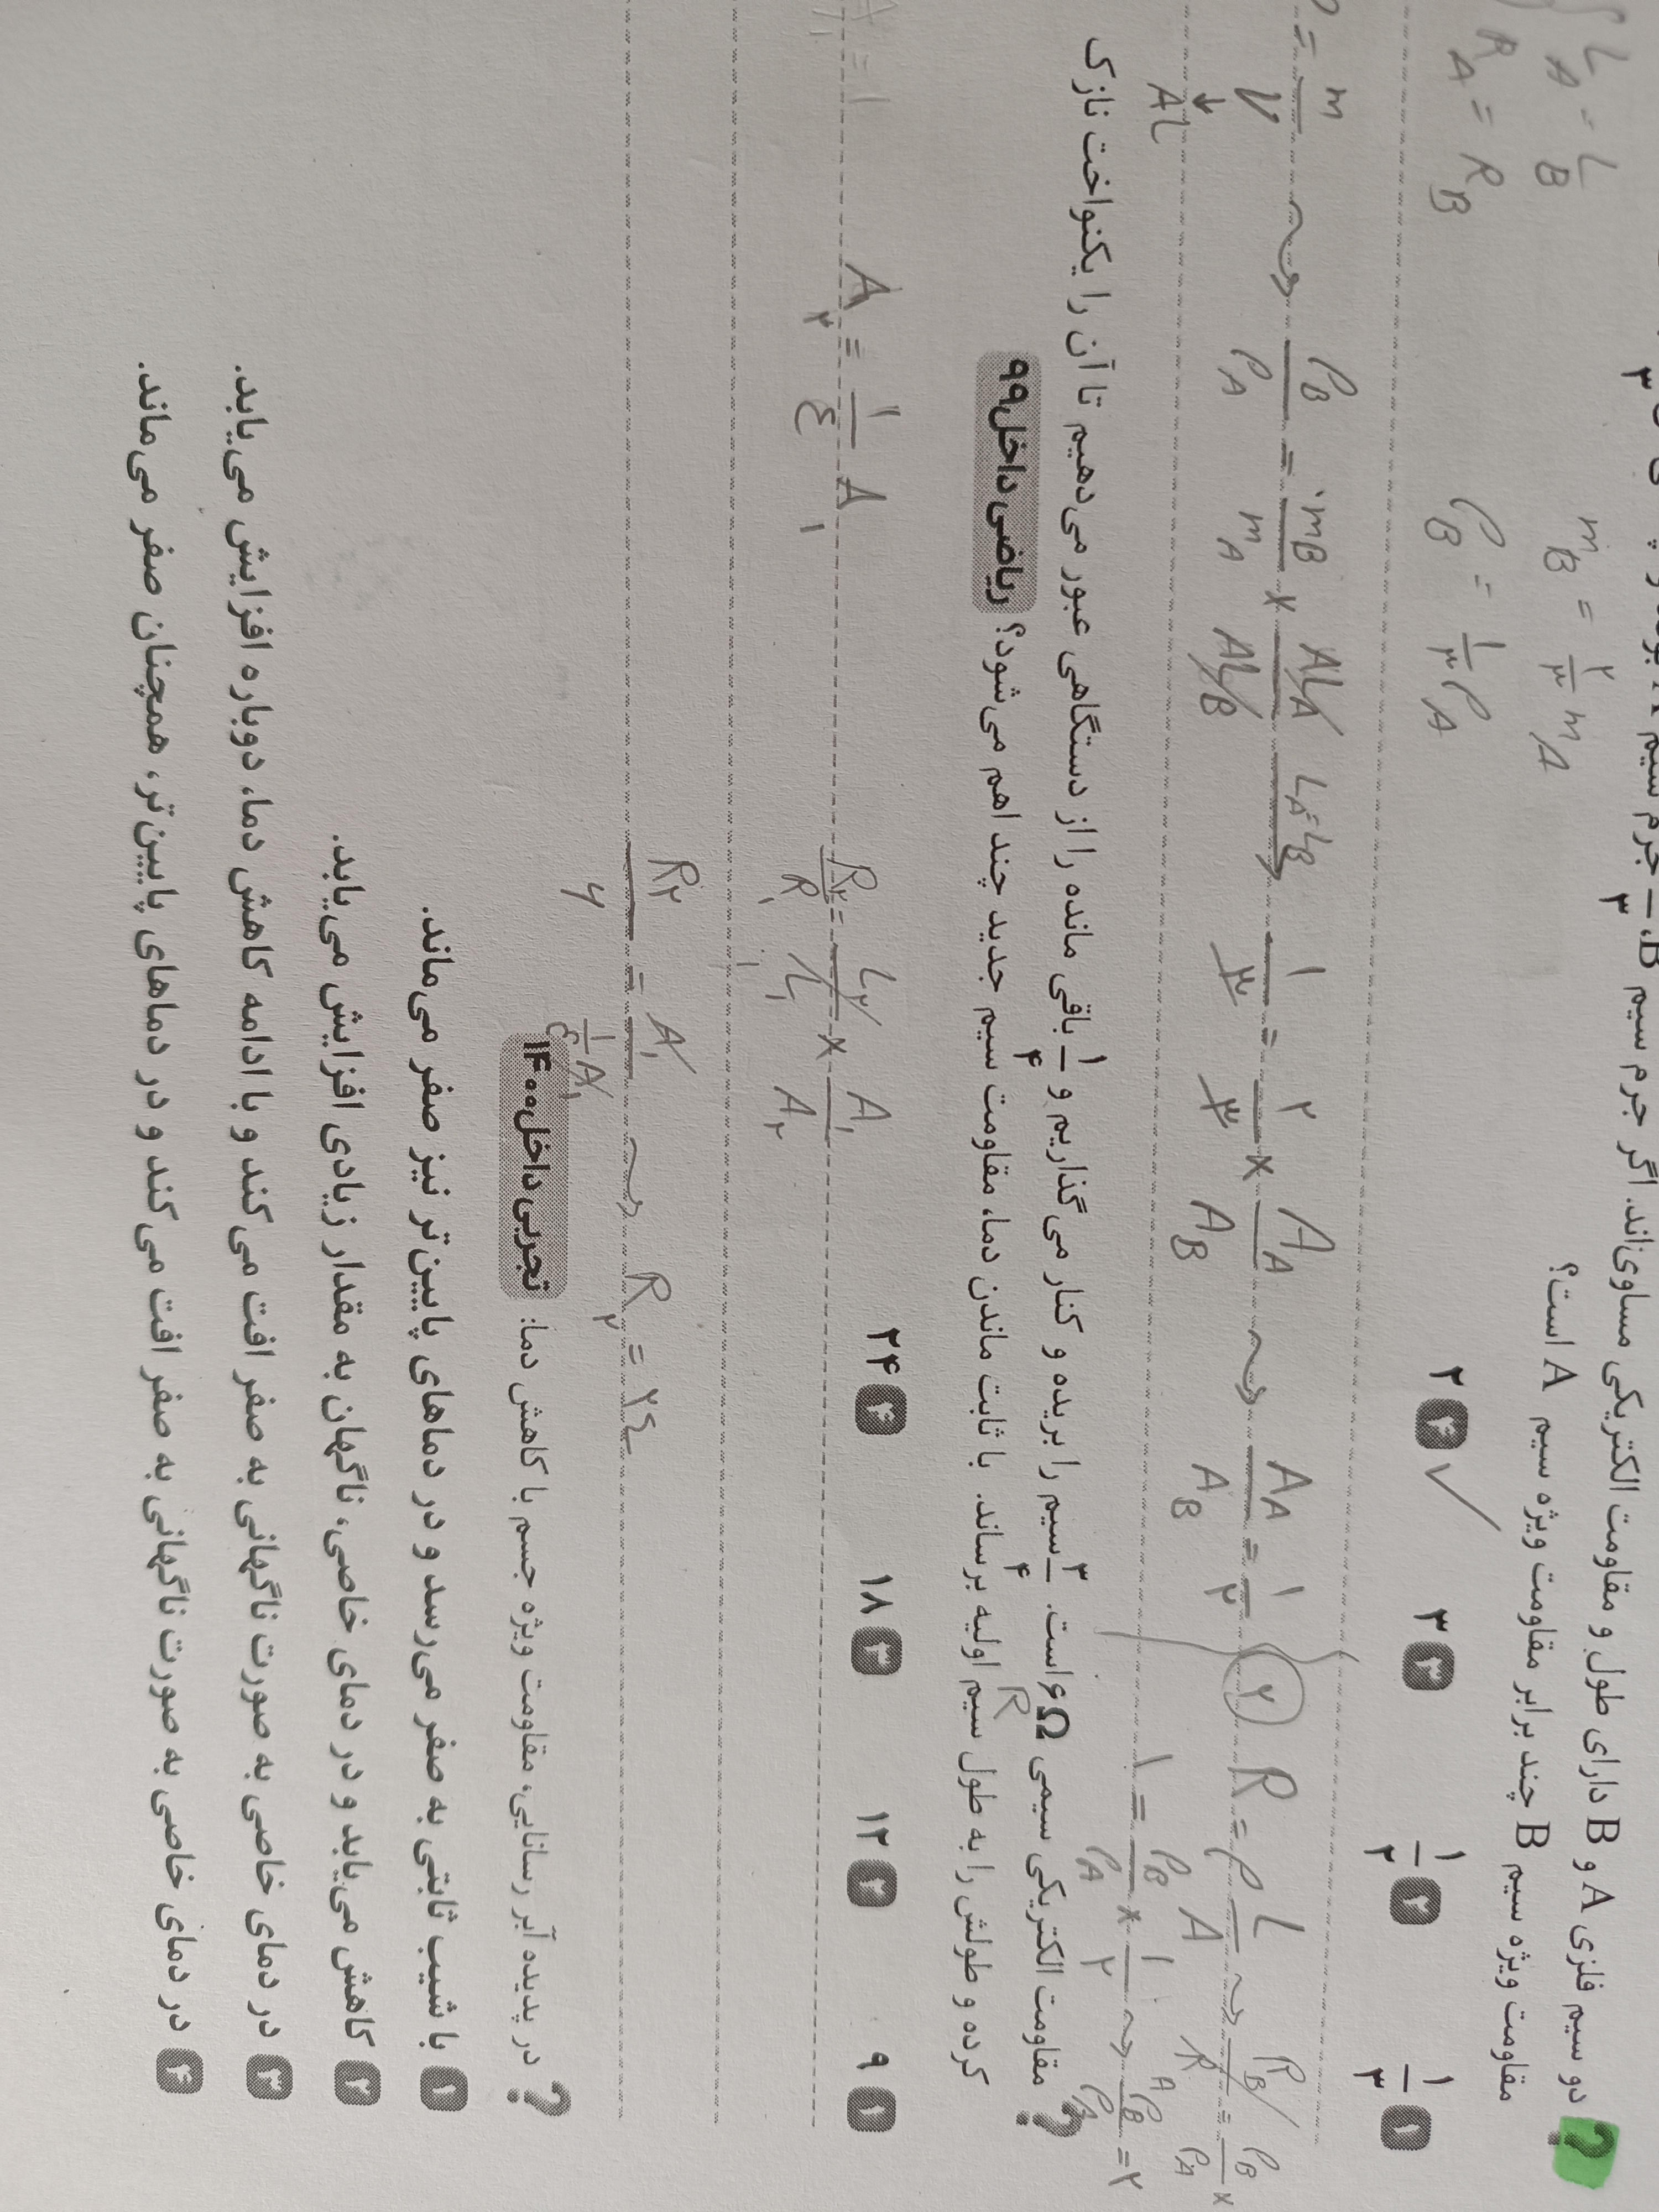 دو سیم فلزی A و B دارای طول و مقاومت الکتریکی مساوی‌اند. اگر جرم سیم B، ۲/۳ جرم سیم A
مقاومت ویژه سیم B چند برابر مقاومت ویژه سیم A است؟
L_A = L_B
R_A = R_B
m_B = ۲/۳ m_A
ρ_B = ۱/۳ ρ_A
۱ ۱/۳ ۲ ۱/۲ ۳ ۳ ۴ ۲ ✓
ρ = m/V ⇝ ρ_B/ρ_A = m_B/m_A × AL_A/AL_B L_A=L_B ۱/۳ = ۲/۳ × A_A/A_B ⇝ A_A/A_B = ۱/۲
AL
R = ρ L/A ⇝ R_B/R_A = ρ_B/ρ_A ×
۱ = ρ_B/ρ_A × ۱/۲ ⇝ ρ_B/ρ_A = ۲
? مقاومت الکتریکی سیمی ۶Ω است. ۳/۴ سیم را بریده و کنار می‌گذاریم و ۱/۴ باقی مانده را از دستگاهی عبور می‌دهیم تا آن را یکنواخت نازک
R
کرده و طولش را به طول سیم اولیه برساند. با ثابت ماندن دما، مقاومت سیم جدید چند اهم می‌شود؟ ریاضی‌داخل۹۹
۱ ۹ ۲ ۱۲ ۳ ۱۸ ۴ ۲۴
A۲ = ۱/۴ A۱
R۲/R۱ = L۲/L۱ × A۱/A۲
R۲/۶ = A۱/(۱/۴ A۱) ⇝ R۲ = ۲۴
? در پدیده آبر رسانایی، مقاومت ویژه جسم با کاهش دما: تجربی‌داخل۱۴۰۰
۱ با شیب ثابتی به صفر می‌رسد و در دماهای پایین‌تر نیز صفر می‌ماند.
۲ کاهش می‌یابد و در دمای خاصی، ناگهان به مقدار زیادی افزایش می‌یابد.
۳ در دمای خاصی به صورت ناگهانی به صفر افت می‌کند و با ادامه کاهش دما، دوباره افزایش می‌یابد.
۴ در دمای خاصی به صورت ناگهانی به صفر افت می‌کند و در دماهای پایین‌تر، همچنان صفر می‌ماند.